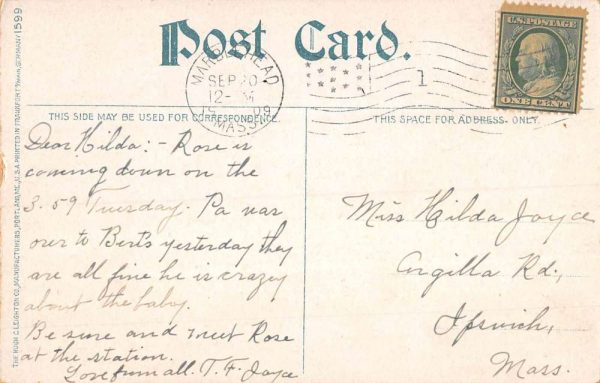 Post Card.
MARBLEHEAD
SEP 20
12- M
1909
MASS.
1
U.S. POSTAGE
ONE CENT
THIS SIDE MAY BE USED FOR CORRESPONDENCE.
THIS SPACE FOR ADDRESS ONLY.
Dear Hilda: - Rose is
coming down on the
3.59 Tuesday. Pa was
over to Berts yesterday they
are all fine he is crazy
about the baby.
Be sure and meet Rose
at the station.
Love from all. T. F. Joyce
Miss Hilda Joyce
Argilla Rd.,
Ipswich,
Mass.
THE HUGH C. LEIGHTON CO., MANUFACTURERS, PORTLAND, ME., U.S.A. PRINTED IN FRANKFORT MAIN, GERMANY 1599